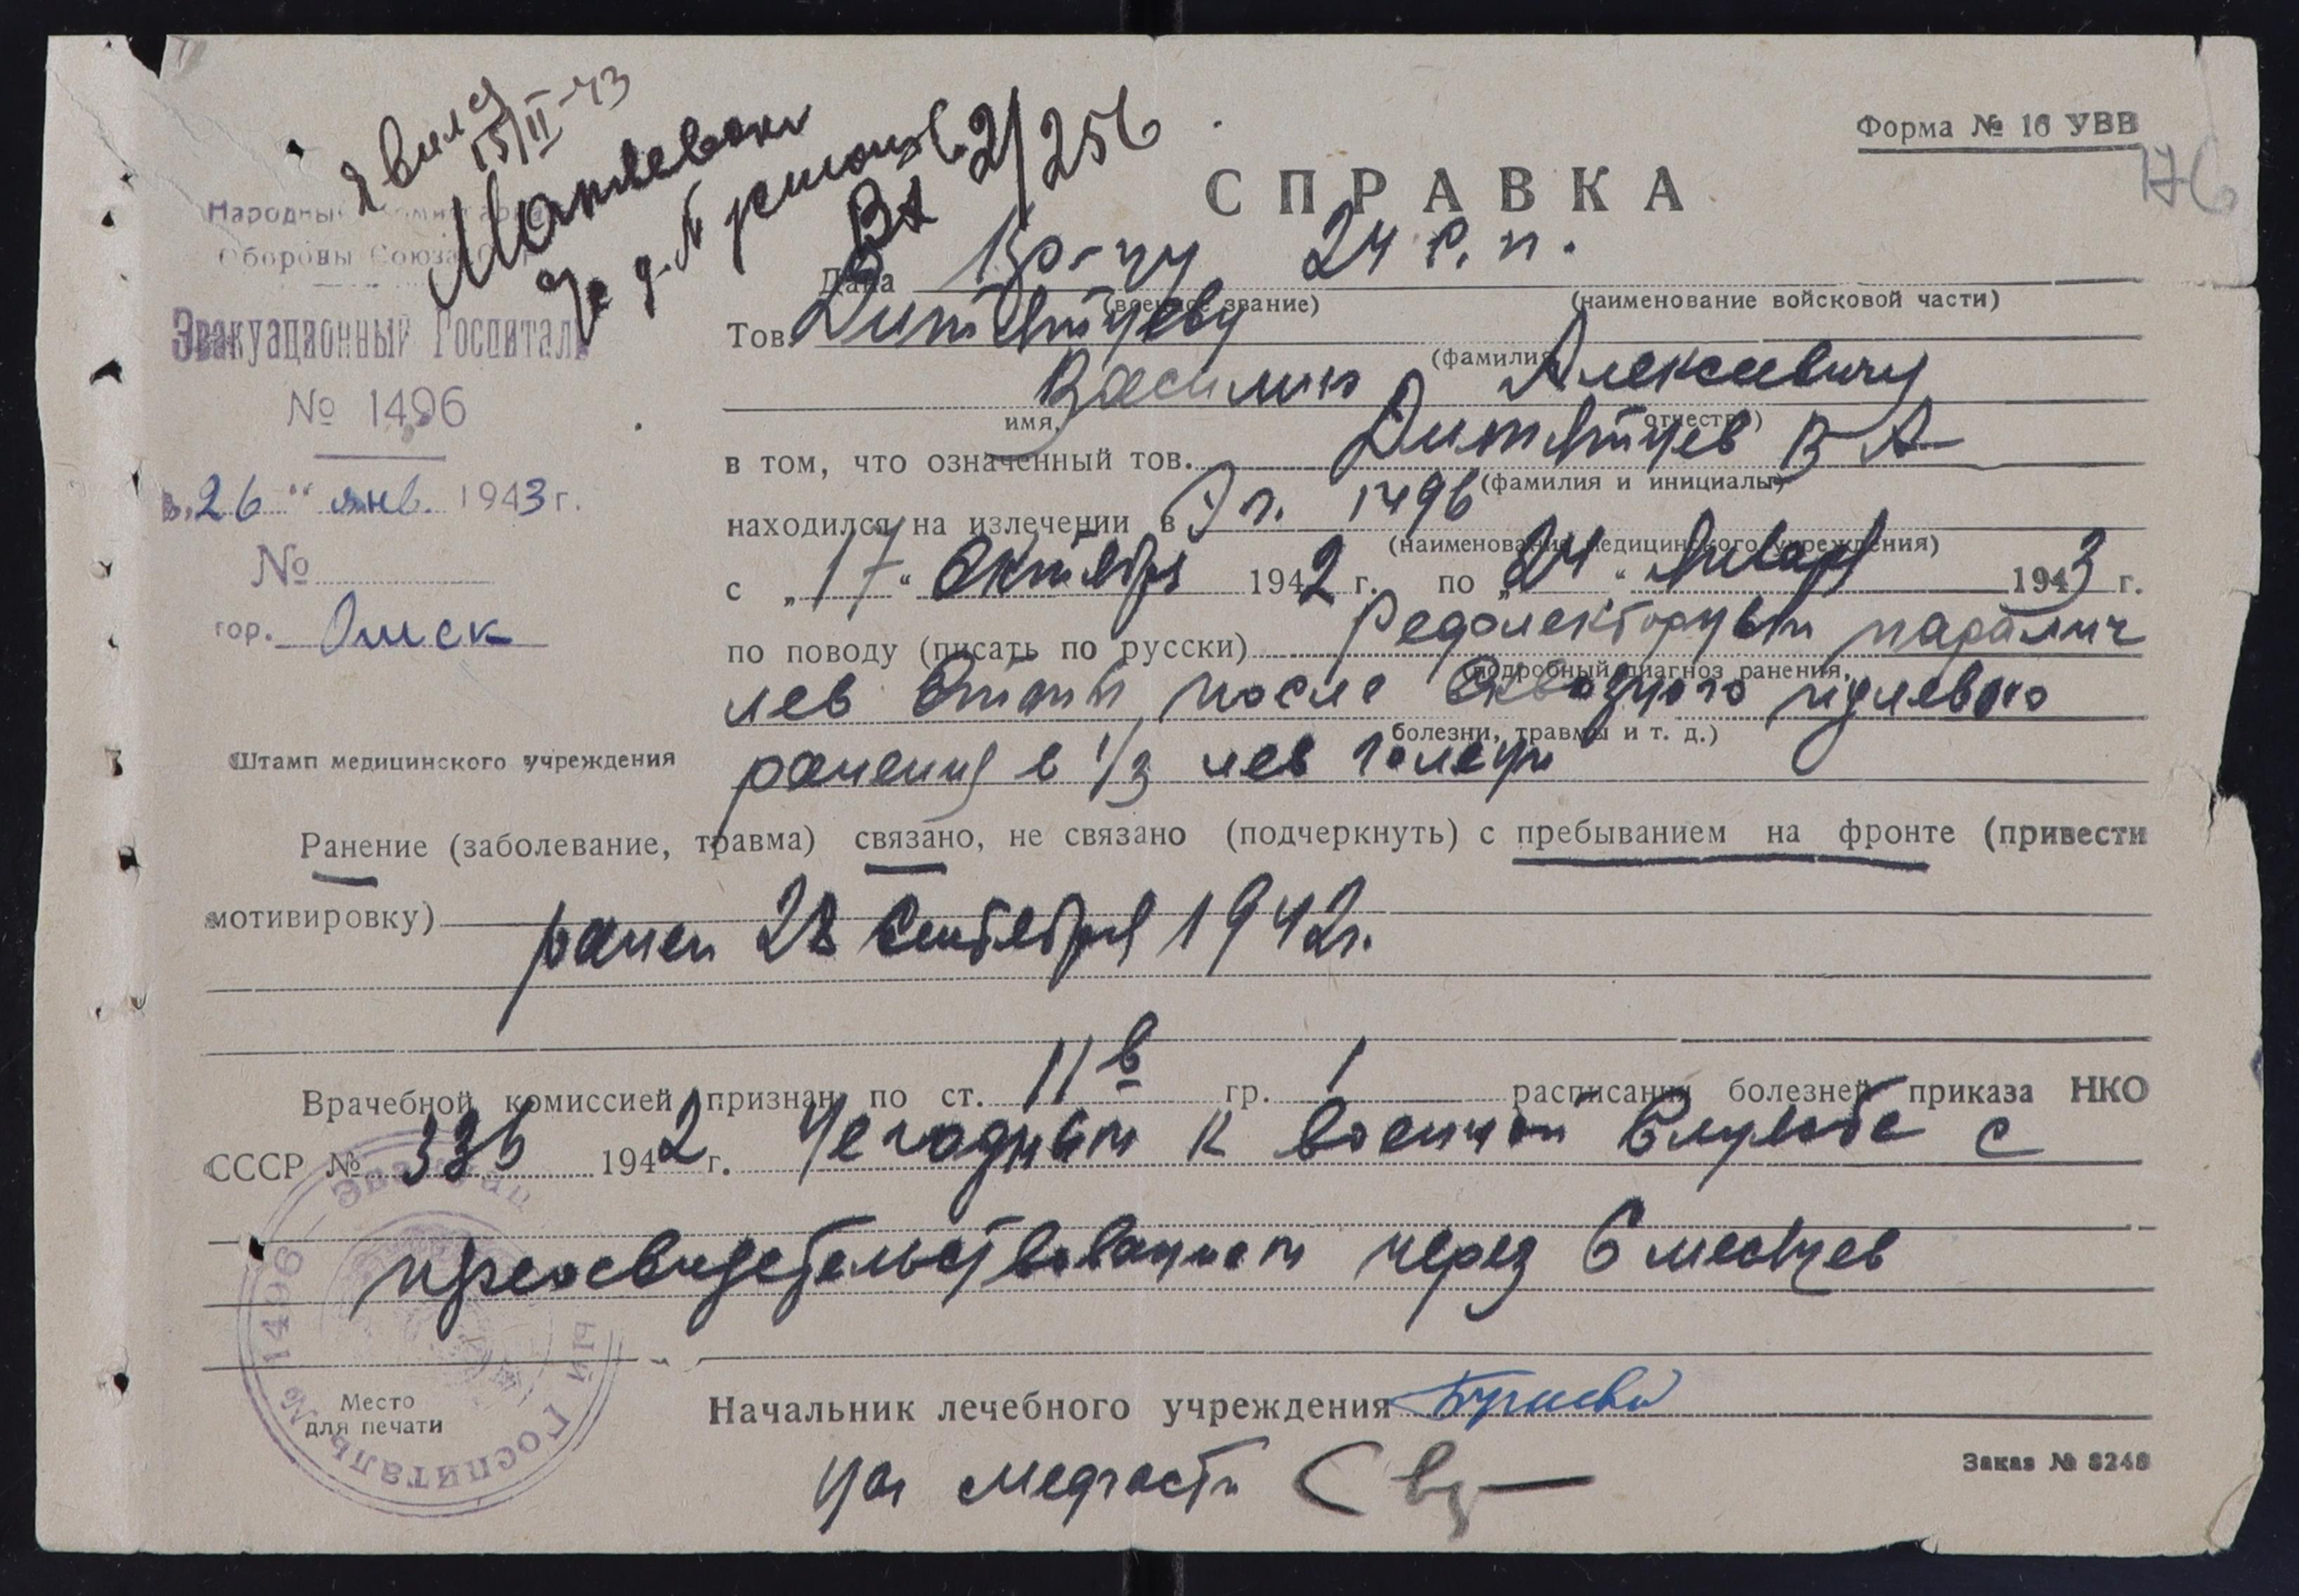 явился
15/II-43
2/256
Форма № 16 УВВ
176
СПРАВКА
Народный Комиссариат
Обороны Союза
Эвакуационный Госпиталь
№ 1496
"26" янв. 1943 г.
№
гор. Омск
Штамп медицинского учреждения
Дана Кр-цу 24 с. п.
(военное звание) (наименование войсковой части)
Тов.
(фамилия
Василию Алексеевичу
имя, отчество)
в том, что означенный тов. В А
(фамилия и инициалы)
находился на излечении в Э г. 1496
(наименование медицинского учреждения)
с „17“ Октября 1942 г. по „24“ Января 1943 г.
по поводу (писать по русски) паралич
(подробный диагноз ранения,
лев стопы после сквозного пулевого
болезни, травмы и т. д.)
ранения в 1/3 лев голени
Ранение (заболевание, травма) связано, не связано (подчеркнуть) с пребыванием на фронте (привести
мотивировку)
ранен 28 Сентября 1942г.
Врачебной комиссией признан по ст. 11в гр. 1 расписания болезней приказа НКО
СССР № 336 1942 г. Негодным к военной службе с
переосвидетельствованием через 6 месяцев
Эвакуац
ный Госпиталь № 1496
Место
для печати
Начальник лечебного учреждения
Нач медчасти
Заказ № 8248